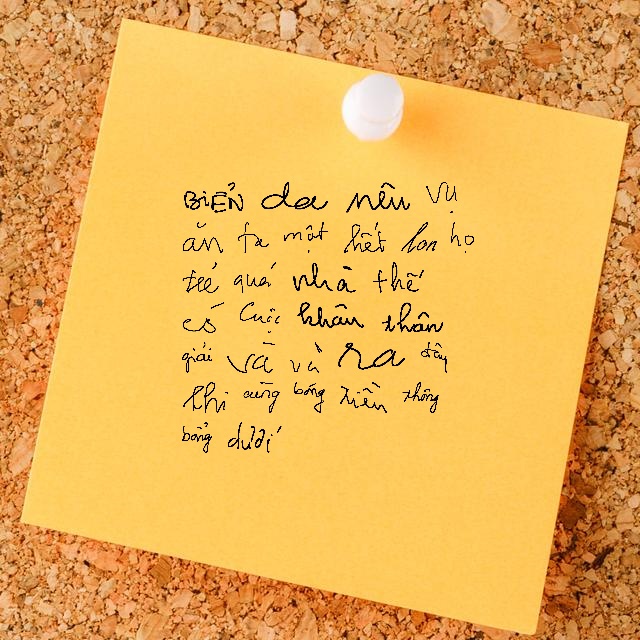 BIỂN da nêu vụ
ăn ta một hết lon họ
trẻ quá nhà thế
có cuộc khân thân
giải và và ra đây
khi cũng bóng tiền thông
bổng dưới